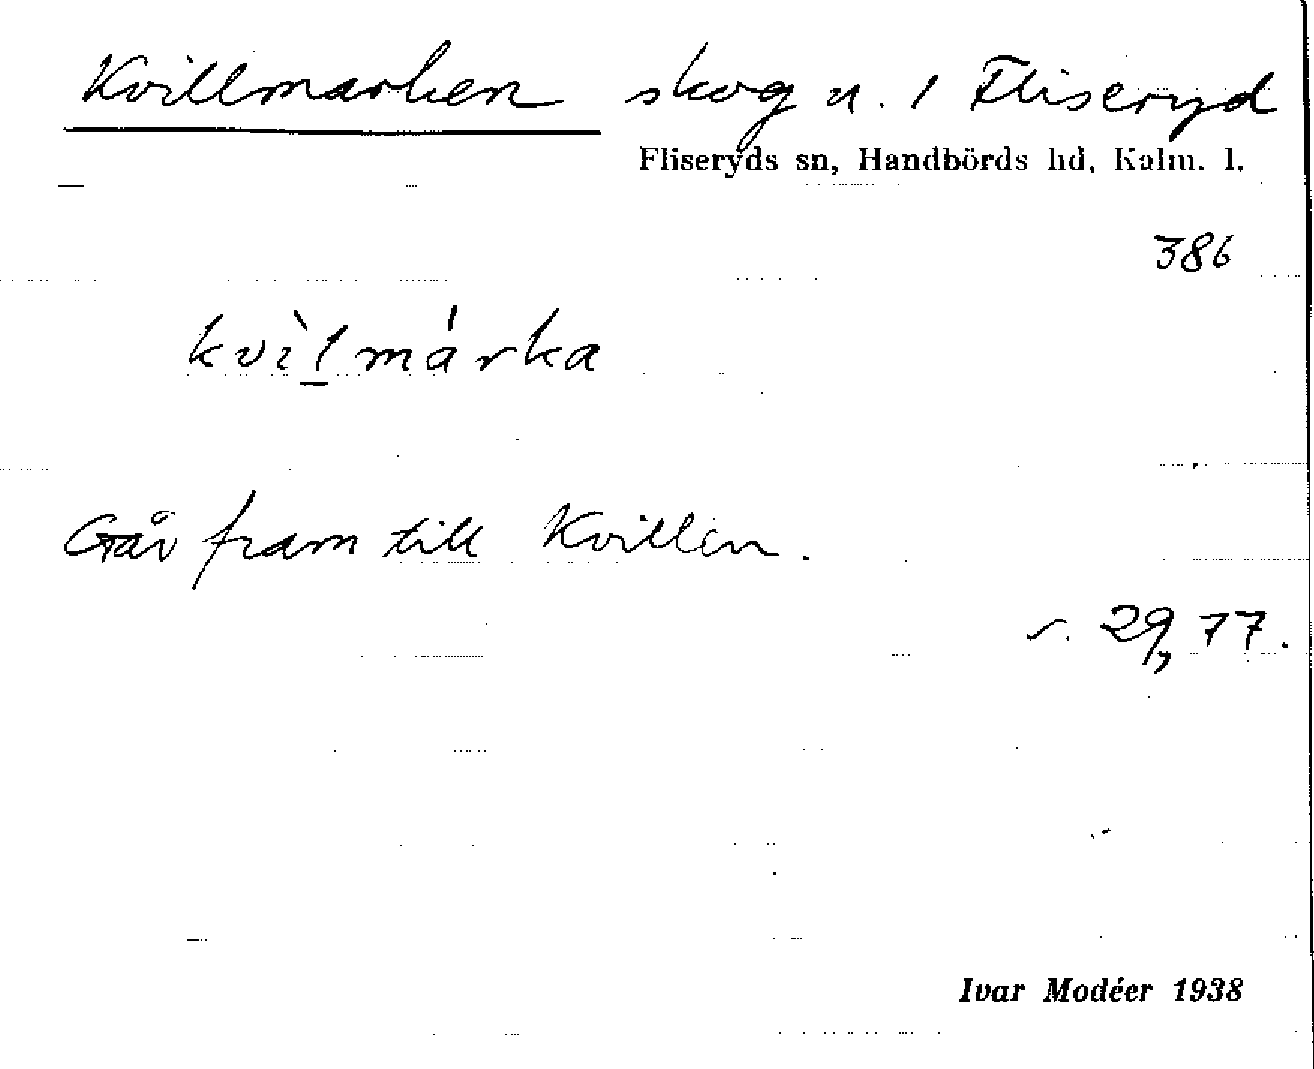 Kvillmarken skog n. 1 Fliseryd
Fliseryds sn, Handbörds hd, Kalm. l.
386
kvìl̲márka
Går fram till Kvillen.
r. 29, 77.
Ivar Modéer 1938